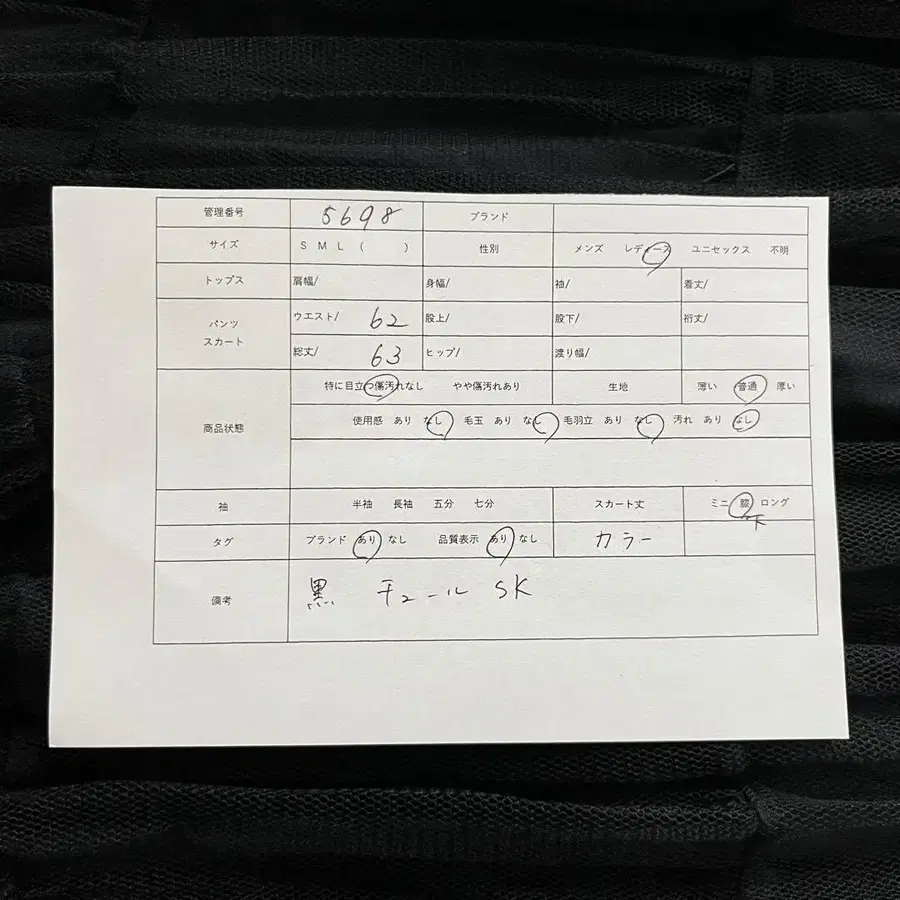 管理番号 5698 ブランド
サイズ S M L ( ) 性別 メンズ レディース ユニセックス 不明
トップス 肩幅/ 身幅/ 袖/ 着丈/
パンツ スカート ウエスト/ 62 股上/ 股下/ 裄丈/
総丈/ 63 ヒップ/ 渡り幅/
商品状態 特に目立つ傷汚れなし やや傷汚れあり 生地 薄い 普通 厚い
使用感 あり なし 毛玉 あり なし 毛羽立 あり なし 汚れ あり なし
袖 半袖 長袖 五分 七分 スカート丈 ミニ 膝 ロング
下
タグ ブランド あり なし 品質表示 あり なし カラー
備考 黒 チュール SK